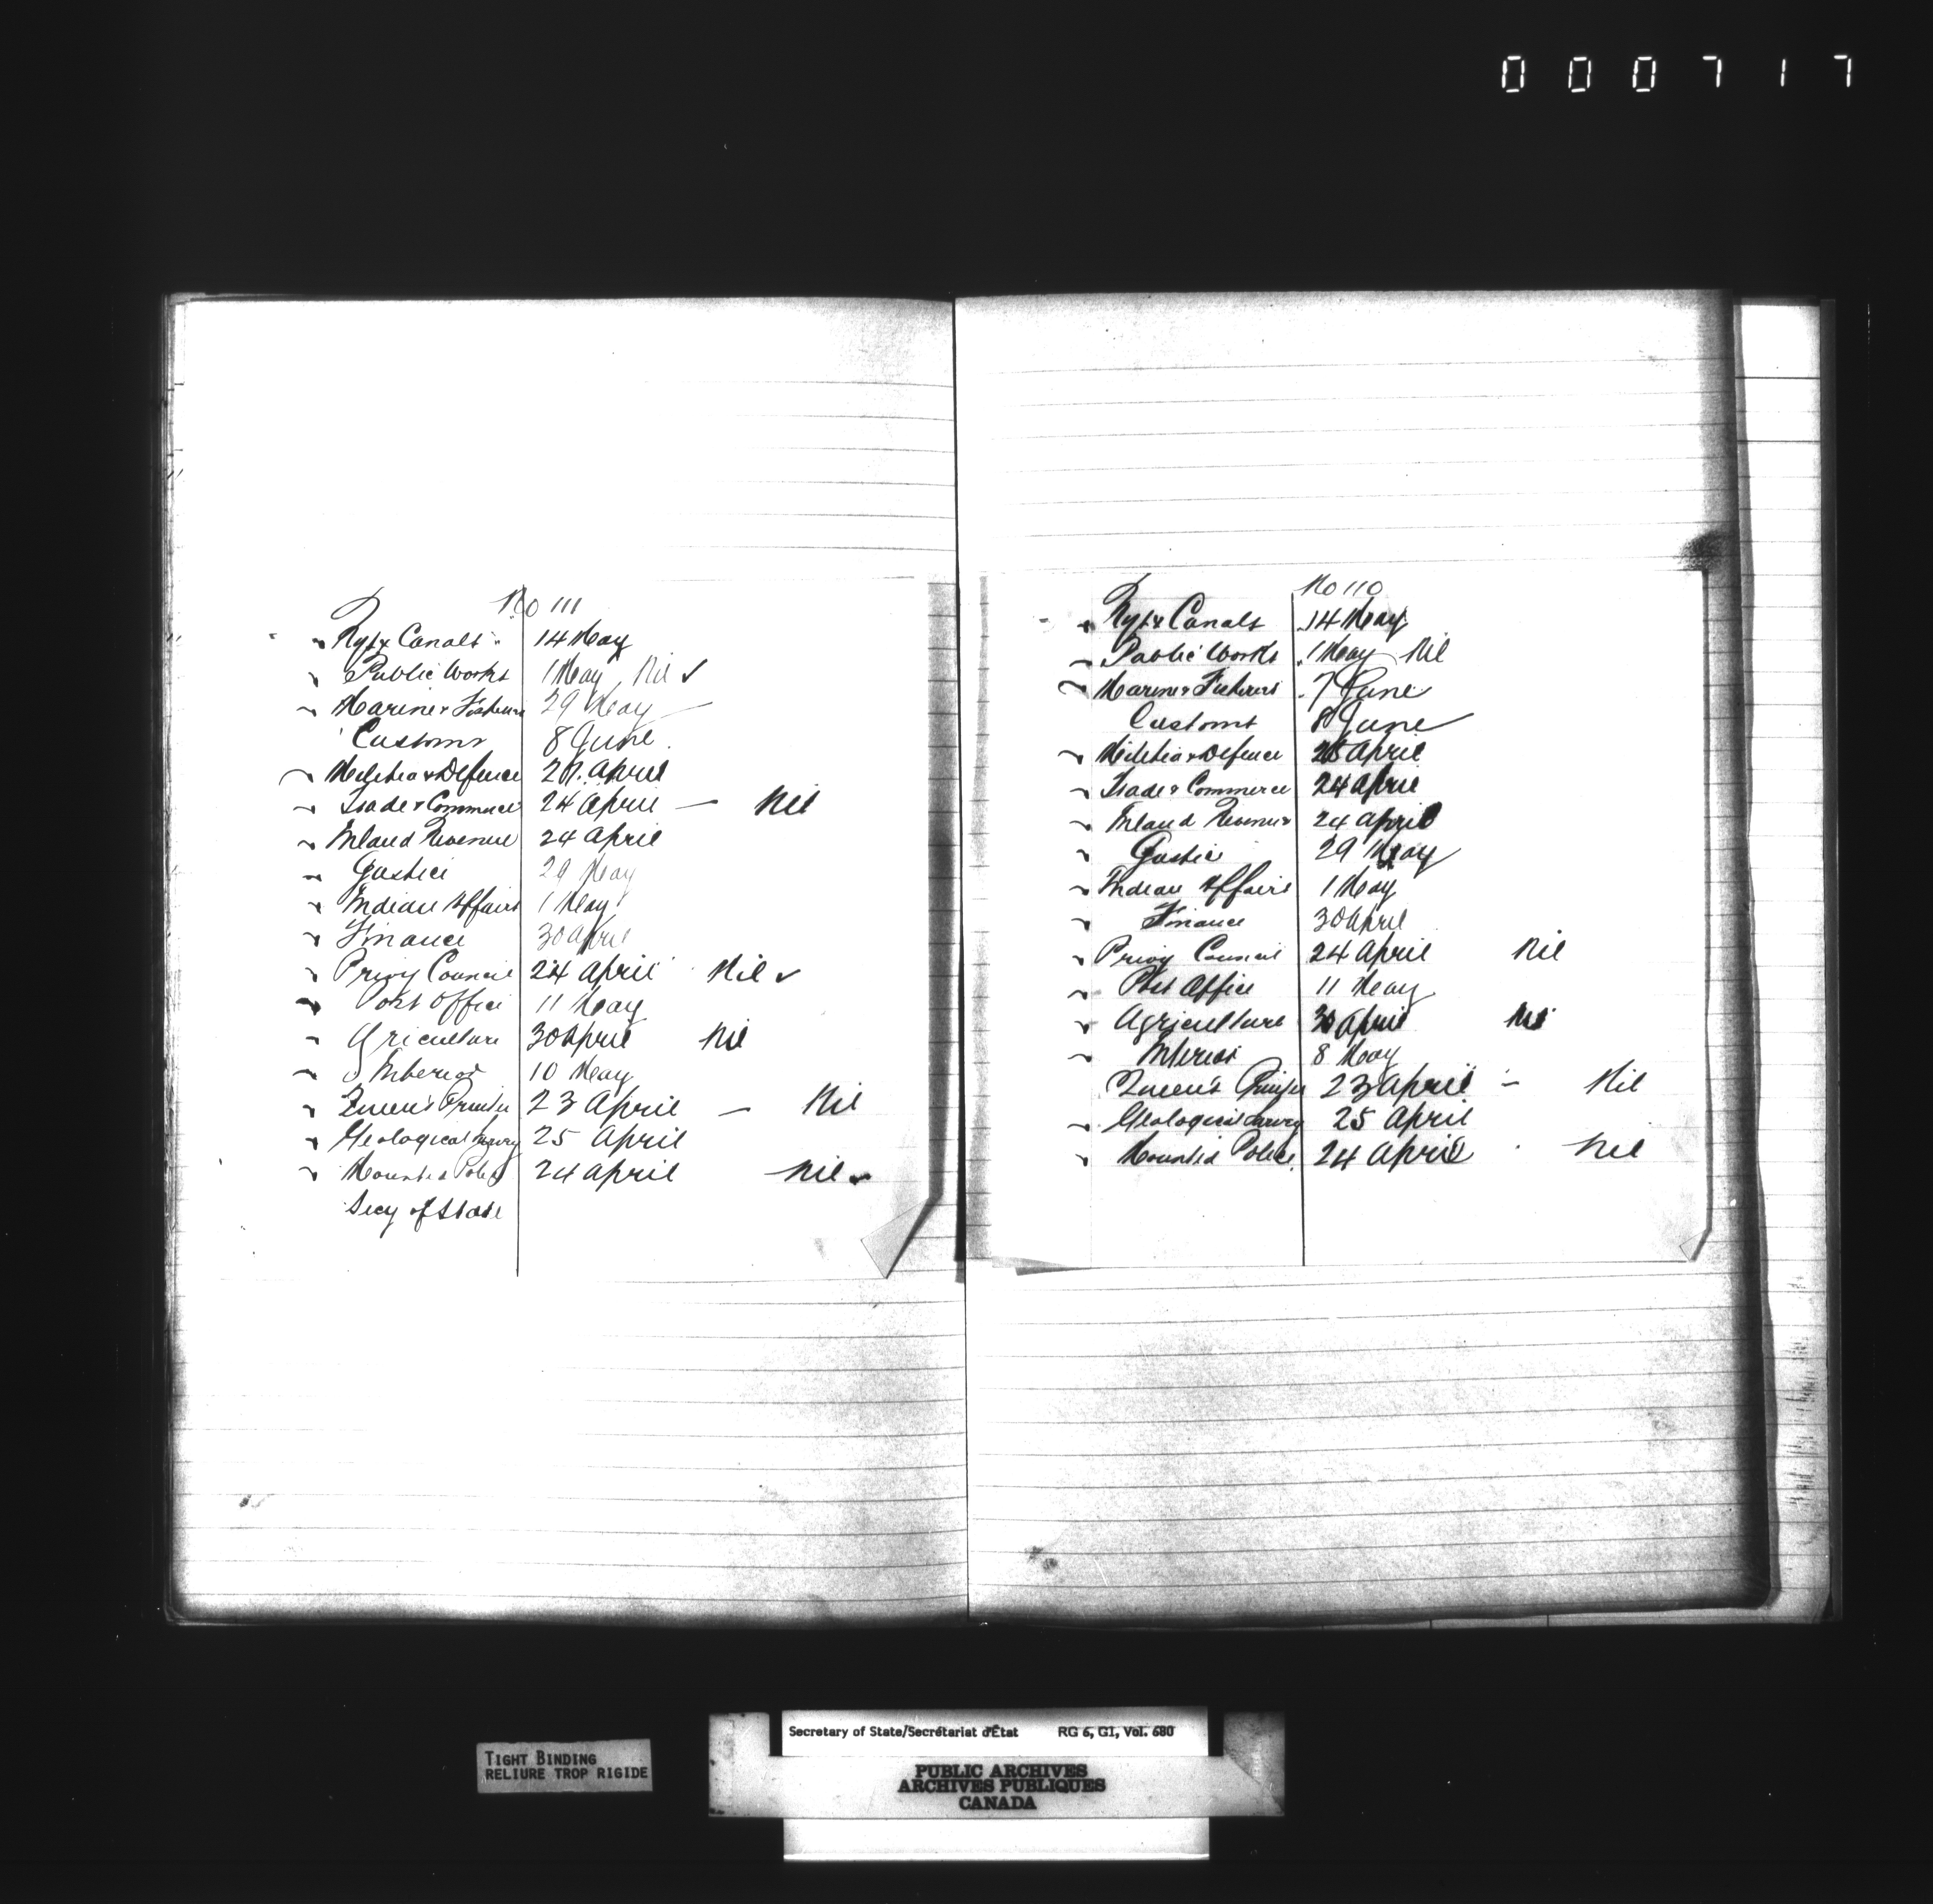 000717
No 111
Rys & Canals 14 May
Public Works 1 May Nil ✓
Marine & Fisheries 29 May —
Customs 8 June
Militia & Defence April
Trade & Commerce 24 April — Nil
Inland Revenue 24 April
Justice 29 May
Indian Affairs 1 May
Finance 30 April
Privy Council 24 April Nil ✓
Post Office 11 May
Agriculture 30 April Nil
Interior 10 May
Queen's Printer 23 April — Nil
Geological Survey 25 April
Mounted Police 24 April Nil ✓
Secy of State
No 110
Rys & Canals 14 May
Public Works 1 May Nil
Marine & Fisheries 7 June
Customs 8 June
Militia & Defence April
Trade & Commerce 24 April
Inland Revenue 24 April
Justice 29 May
Indian Affairs 1 May
Finance 30 April
Privy Council 24 April Nil
Post Office 11 May
Agriculture 30 April Nil
Interior 8 May
Queen's Printer 23 April — Nil
Geological Survey 25 April
Mounted Police 24 April Nil
TIGHT BINDING
RELIURE TROP RIGIDE
Secretary of State/Secrétariat d'État RG 6, G1, Vol. 680
PUBLIC ARCHIVES
ARCHIVES PUBLIQUES
CANADA